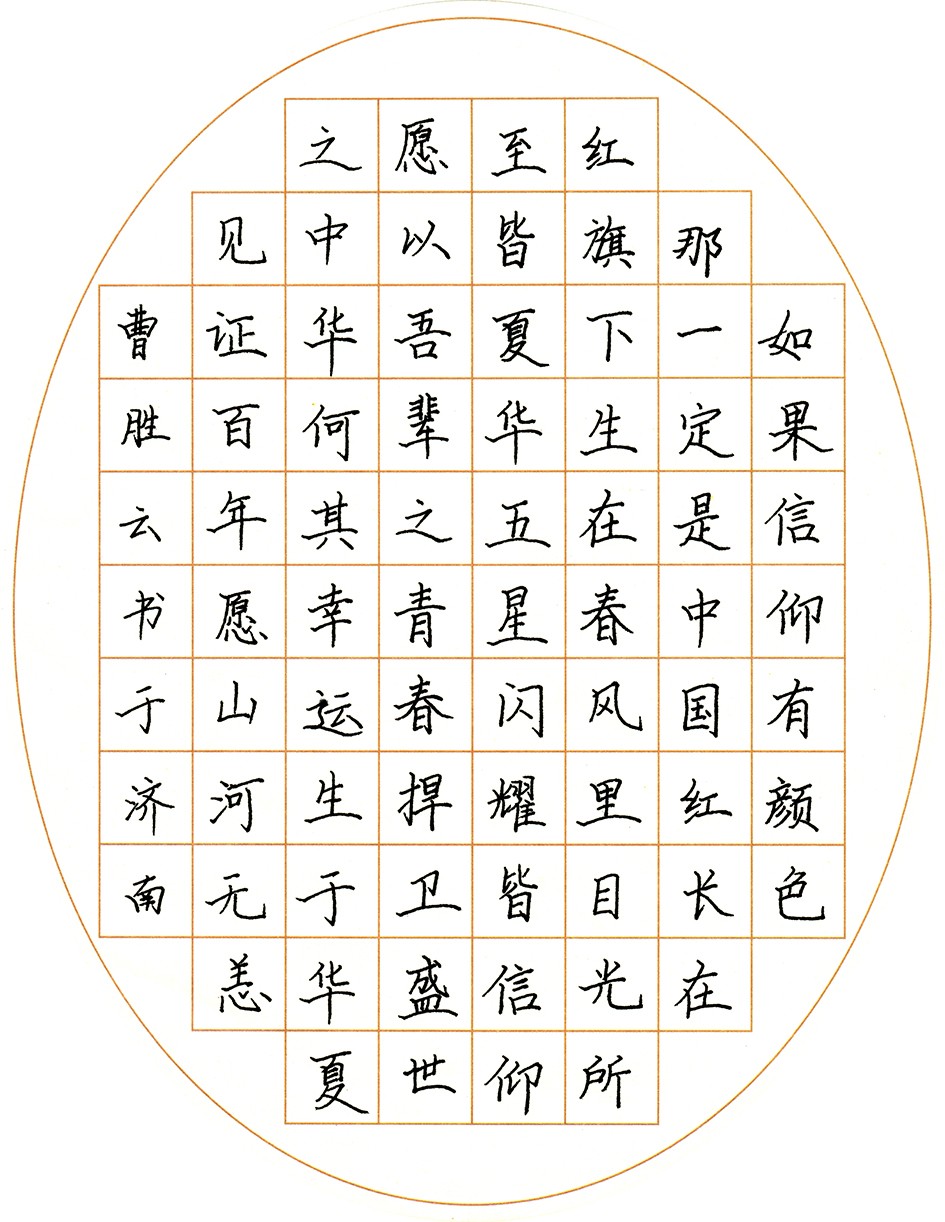 如果信仰有颜色
那一定是中国红长在
红旗下生在春风里目光所
至皆夏华五星闪耀皆信仰
愿以吾辈之青春捍卫盛世
之中华何其幸运生于华夏
见证百年愿山河无恙
曹胜云书于济南